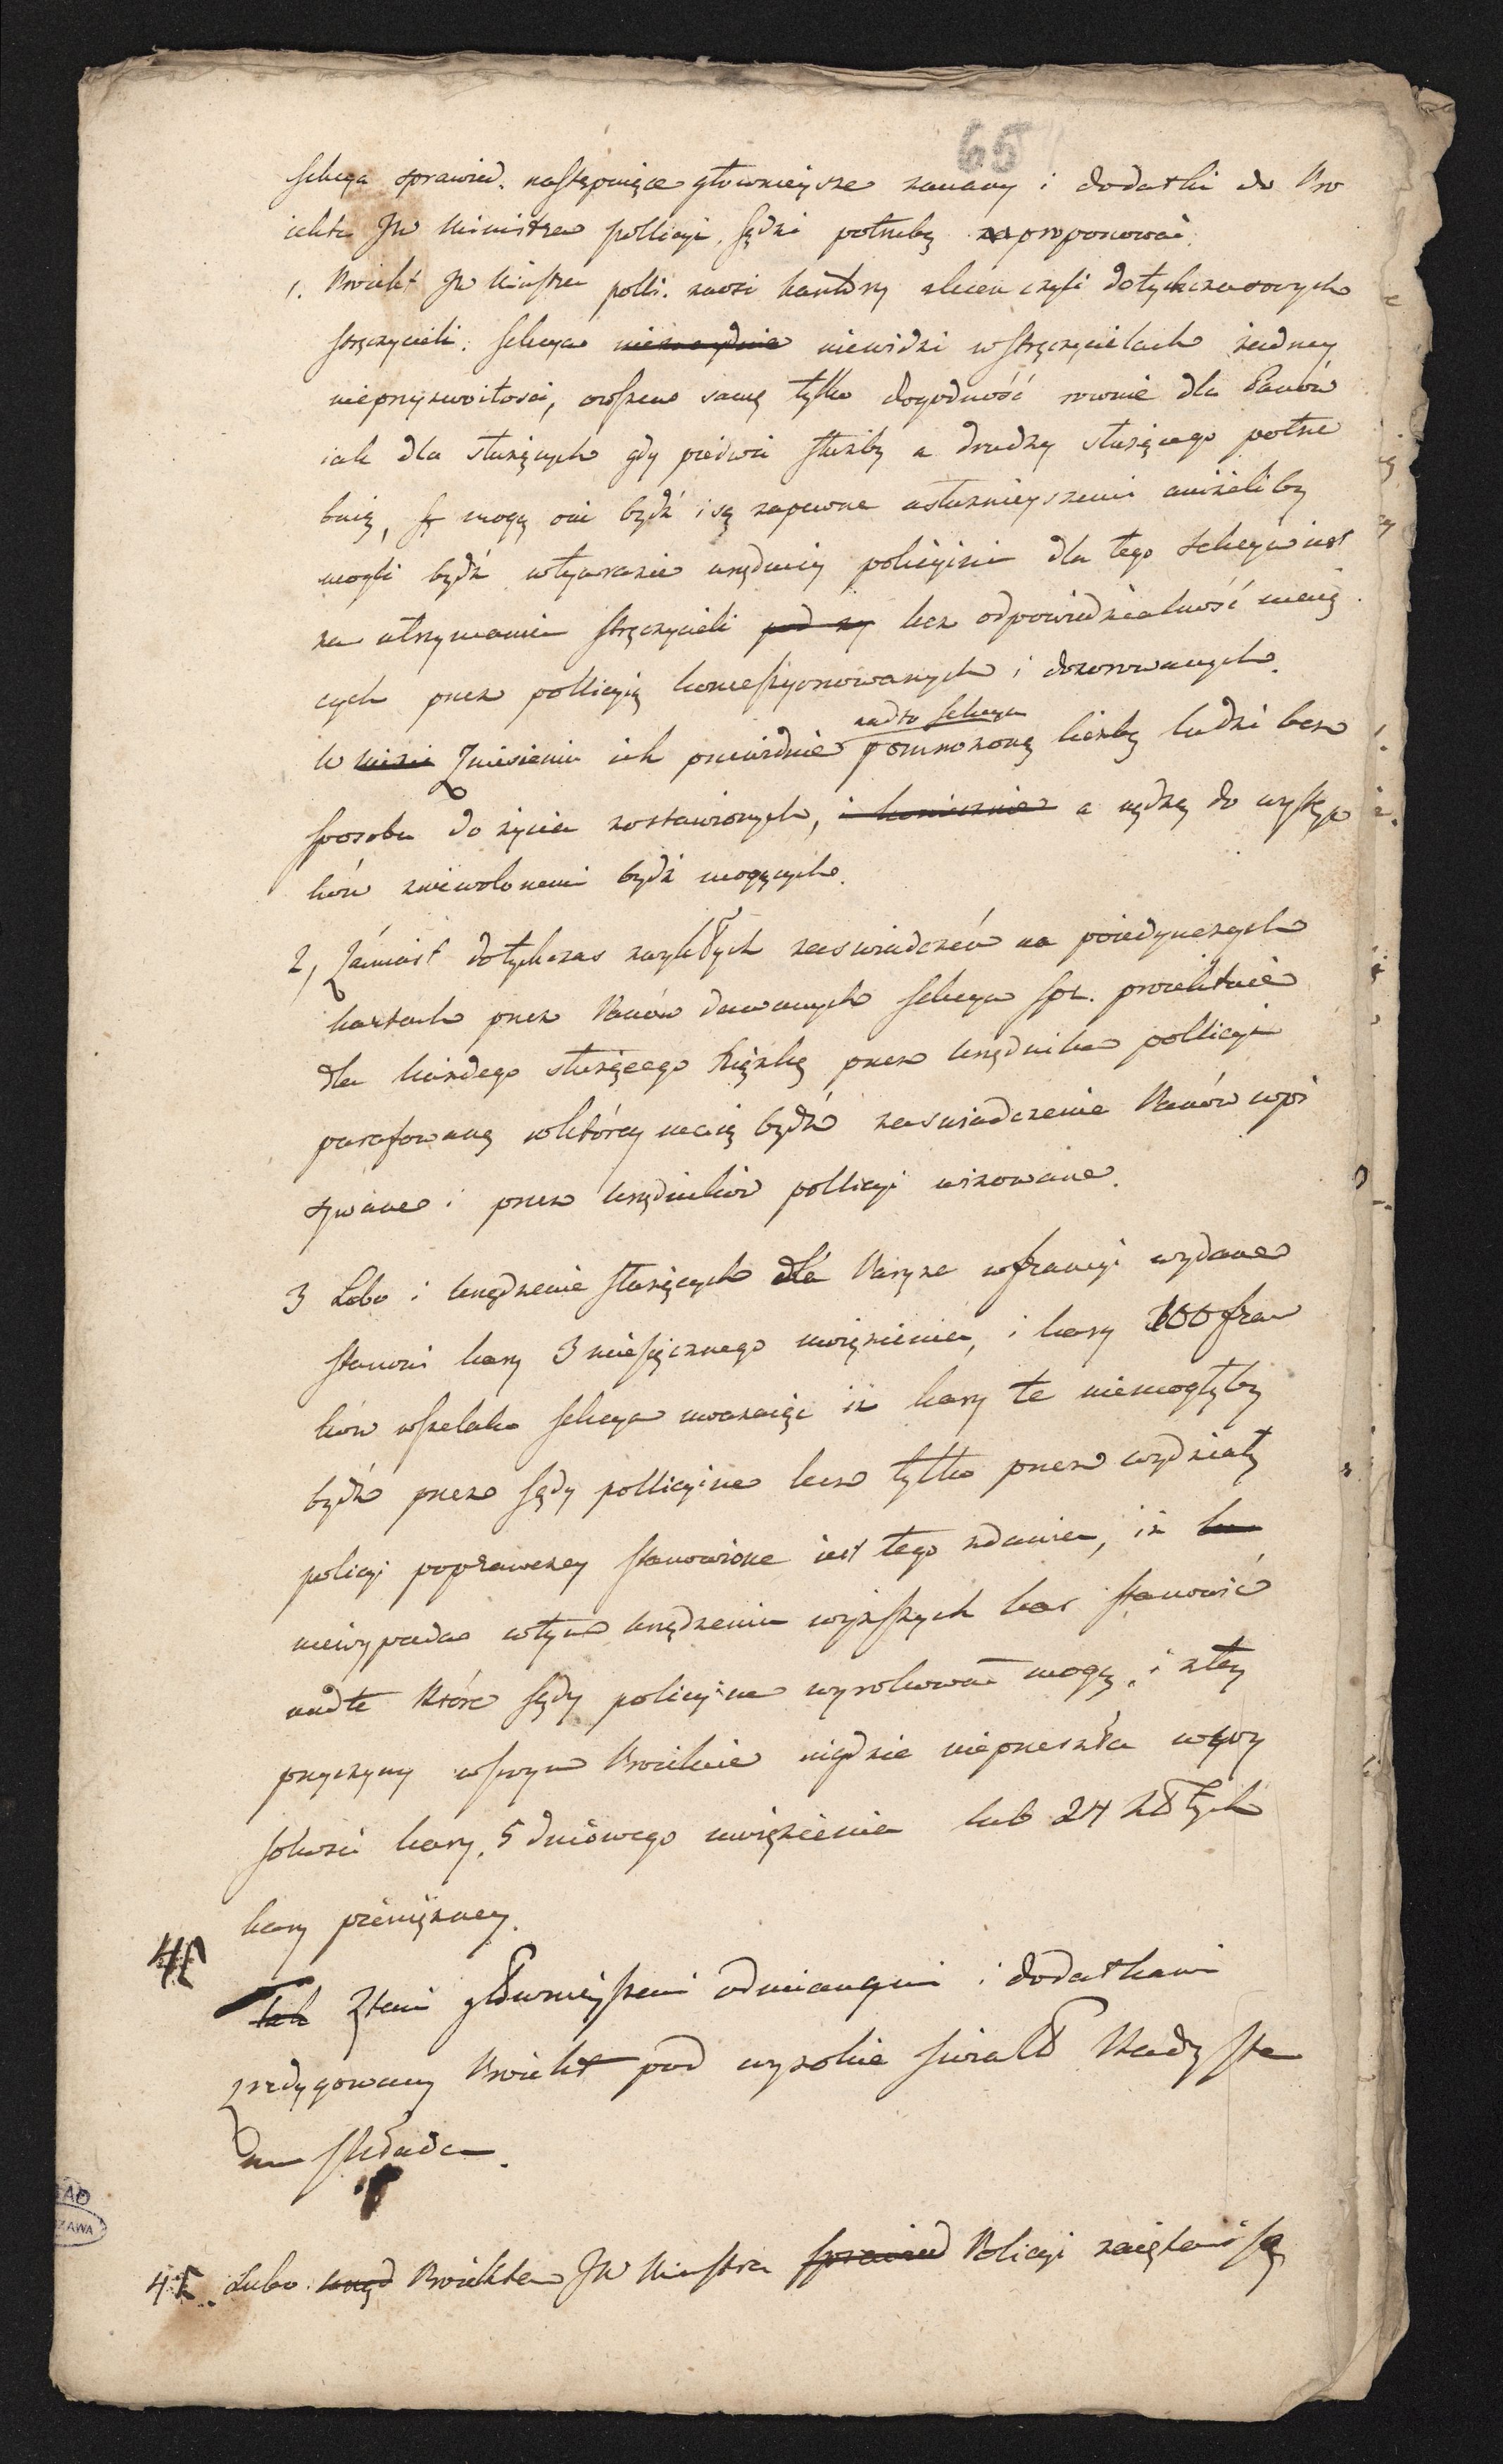 65
Sekcya sprawied. następuiące głownieysze zmiany i dodatki do Pro
iektu JW Ministra pollicyi sądzi potrzebą zaproponować.
1. Proiekt JW Ministra polli. znosi kantory zleceń czyli dotychczasowych
stręczycieli. Sekcya niewidzi w stręczycielach żadney
nieprzyzwoitości, owszem samą tylko dogodność rownie dla Panów
iak dla służących gdy pierwsi służby a drudzy służącego potrze
buią, mogą oni bydź i są zapewne usłużnieyszemi aniżeliby
mogli bydź w tym razie urzędnicy policyini dla tego Sekcya iest
za utrzymaniem stręczycieli pod lecz odpowiedzialność maią
cych przez pollicyią koncessyonowanych i dozorowanych.
nadto Sekcya
W razie Zniesieniu ich przewidnie pomnożoną liczbę ludzi bez
sposobu do życia zostawionych, i koniecznie a nędzą do występ
ków zniewolonemi bydź mogących.
2, Zamiast dotychczas zwykłych zaświadczeń na poiedynczych
kartach przez Panów dawanych Sekcya spr. proiektuie
dla każdego służącego Książkę przez Urzędnika pollicyi
parafowaną w którey maią bydź zaświadczenia Panów wpi
sywane i przez Urzędników pollicyi wizowane.
3 Lubo i Urządzenie służących dla Paryża w francyi wydane
stanowi kary 3 miesięcznego uwięzienia, i kary 100 fran
ków wszelako Sekcya uważaiąc iż kary te niemogłyby
bydź przez sądy pollicyine lecz tylko przez wydziały
policyi poprawczey stanowione iest tego zdania, iż
niewypada w tym Urządzeniu wyższych kar stanowić
nadte które sądy policyine wyrokować mogą, i z tey
przyczyny w swym Proiekcie nigdzie nieprzeszła wy
sokości kary 5 dniowego uwięzienia lub 24 złotych
kary pieniężney.
4[
tak Z temi głównieyszemi odmianami i dodatkami
zredygowany Proiekt pod wysokie światło Rady Sta
nu składa.
4[. Lubo urząd Proiektem JW Ministra sprawied Policyi zaięte są